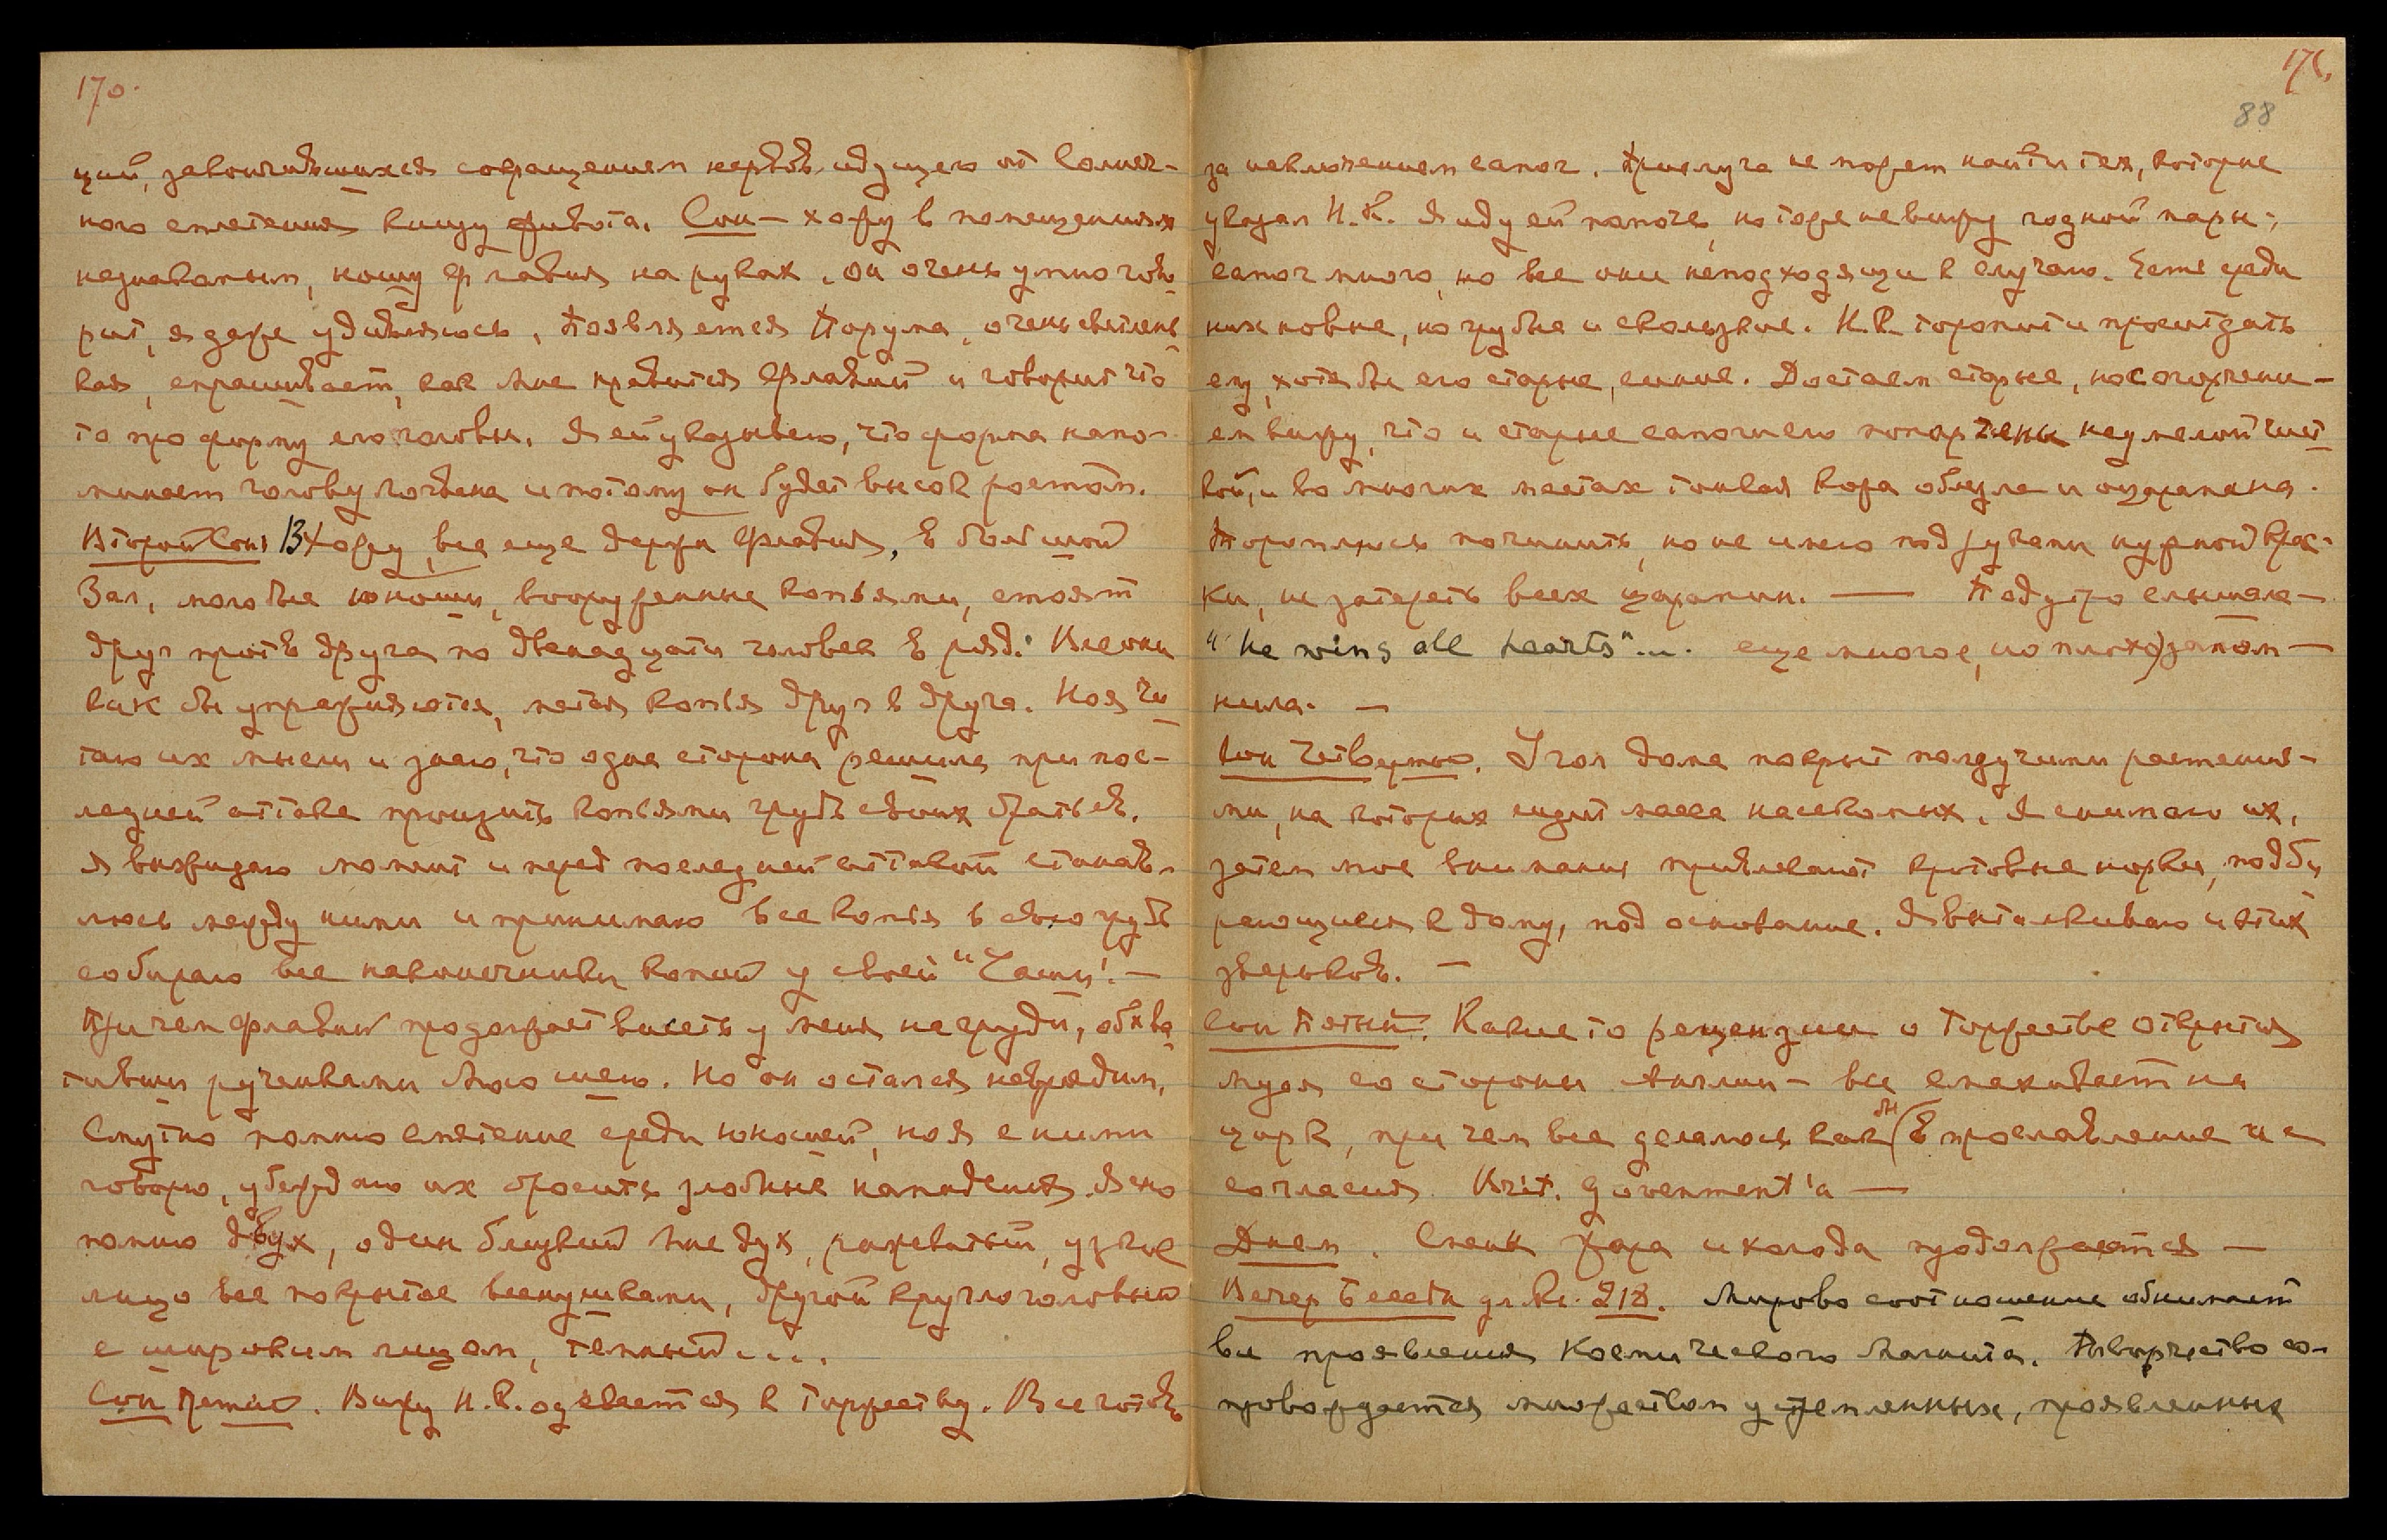 170.
ций, закончившихся сокращением нервов, идущего от Солнеч-
ного сплетения книзу живота. Сон — хожу в помещениях
незнакомым, ношу Флавия на руках, он очень умно гово-
рит, я даже удивляюсь, появляется Порума, очень светлень-
кая, спрашивает, как мне нравится Флавий и говорит что
то про форму его головы. Я ей указываю, что форма напо-
минает голову и потому он будет высок ростом.
Второй сон Вхожу, все еще держа Флавия, в большой
Зал, молодые юноши, вооруженные копьями, стоят
друг против друга по двенадцати человек в ряд. Все они
как бы упражняются, метая копья друг в друга. Но я чи-
таю их мысли и знаю, что одна сторона решила при пос-
ледней атаке пронзить копьями грудь своих братьев.
Я выжидаю момент и перед последней атакой станов-
люсь между ними и принимаю все копья в свою грудь
собираю все наконечники копий у своей "Чаши". —
При чем Флавий продолжает висеть у меня на груди, обхва-
тивши рученками мою шею. Но он остался невредим,
Смутно помню смятение среди юношей, но я с ними
говорю, убеждаю их бросить злобные нападения. Ясно
помню двух, один близкий мне дух, рыжеватый, узкое
лицо все покрытое веснушками, другой круглоголовый
с широким лицом, темный....
Сон третий. Вижу Н.К. одевается к торжеству. Все готово
171.
88
за исключением сапог. Прислуга не может найти тех, которые
указал Н.К. Я иду ей помочь, но тоже не вижу годной пары;
сапог много, но все они неподходящи к случаю. Есть среди
них новые, но грубые и скользкие. Н.К. торопит и просит дать
ему хотя бы его старые, синие. Достаем старые, но с огорчени-
ем вижу, что и старые сапоги его попорчены неумелой чист-
кой, и во многих местах тонкая кожа облезла и оцарапана.
Тороплюсь починить, но не имею под руками нужной крас-
ки, не затереть всех царапин. — Под утро слышала —
"He wins all hearts"... еще многое, но плохо запом-
нила. —
Сон Четвертый. Угол дома покрыт ползучими растения-
ми, на которых сидит масса насекомых. Я снимаю их,
затем мое внимание привлекают кротовые норки, подби-
рающиеся к дому, под основание. Я выталкиваю и этих
зверьков. —
Сон Пятый. Какие то рецензии о Торжестве открытия
музея со стороны Англии — все смахивает на
цирк, при чем все делалось как бы в прославление и с
согласия Brit. government'а —
Днем. Смена жара и холода продолжается —
Вечер Беседы 218. Мирово соотношение обнимает
все проявления Космического Магнита. Творчество со-
провождается множеством устремленных, проявленных